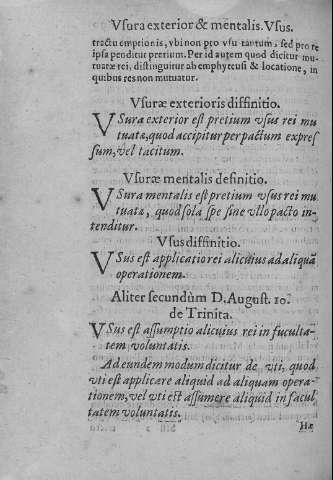 Vſura exterior & mentalis. Vſus.
tractu emptionis, vbi non pro vſu tantum, ſed pro re
ipſa penditur pretium. Per id autem quod dicitur mu-
tuatæ rei, diſtinguitur ab emphyteuſi & locatione, in
quibus res non mutuatur.
Vſuræ exterioris diffinitio.
VSura exterior eſt pretium vſus rei mu
tuatæ, quod accipitur per pactum expreſ
ſum, vel tacitum.
Vſuræ mentalis definitio.
VSura mentalis eſt pretium vſus rei mu
tuatæ, quod ſola ſpe ſine vllo pacto in-
tenditur.
Vſus diffinitio.
VSus eſt applicatio rei alicuius ad aliquā
operationem.
Aliter ſecundùm D. Auguſt. 10.
de Trinita.
VSus eſt aſſumptio alicuius rei in faculta-
tem voluntatis.
Ad eundem modum dicitur de vti, quod
vti eſt applicare aliquid ad aliquam opera-
tionem, vel vti eſt aſſumere aliquid in facul
tatem voluntatis.
Hæ